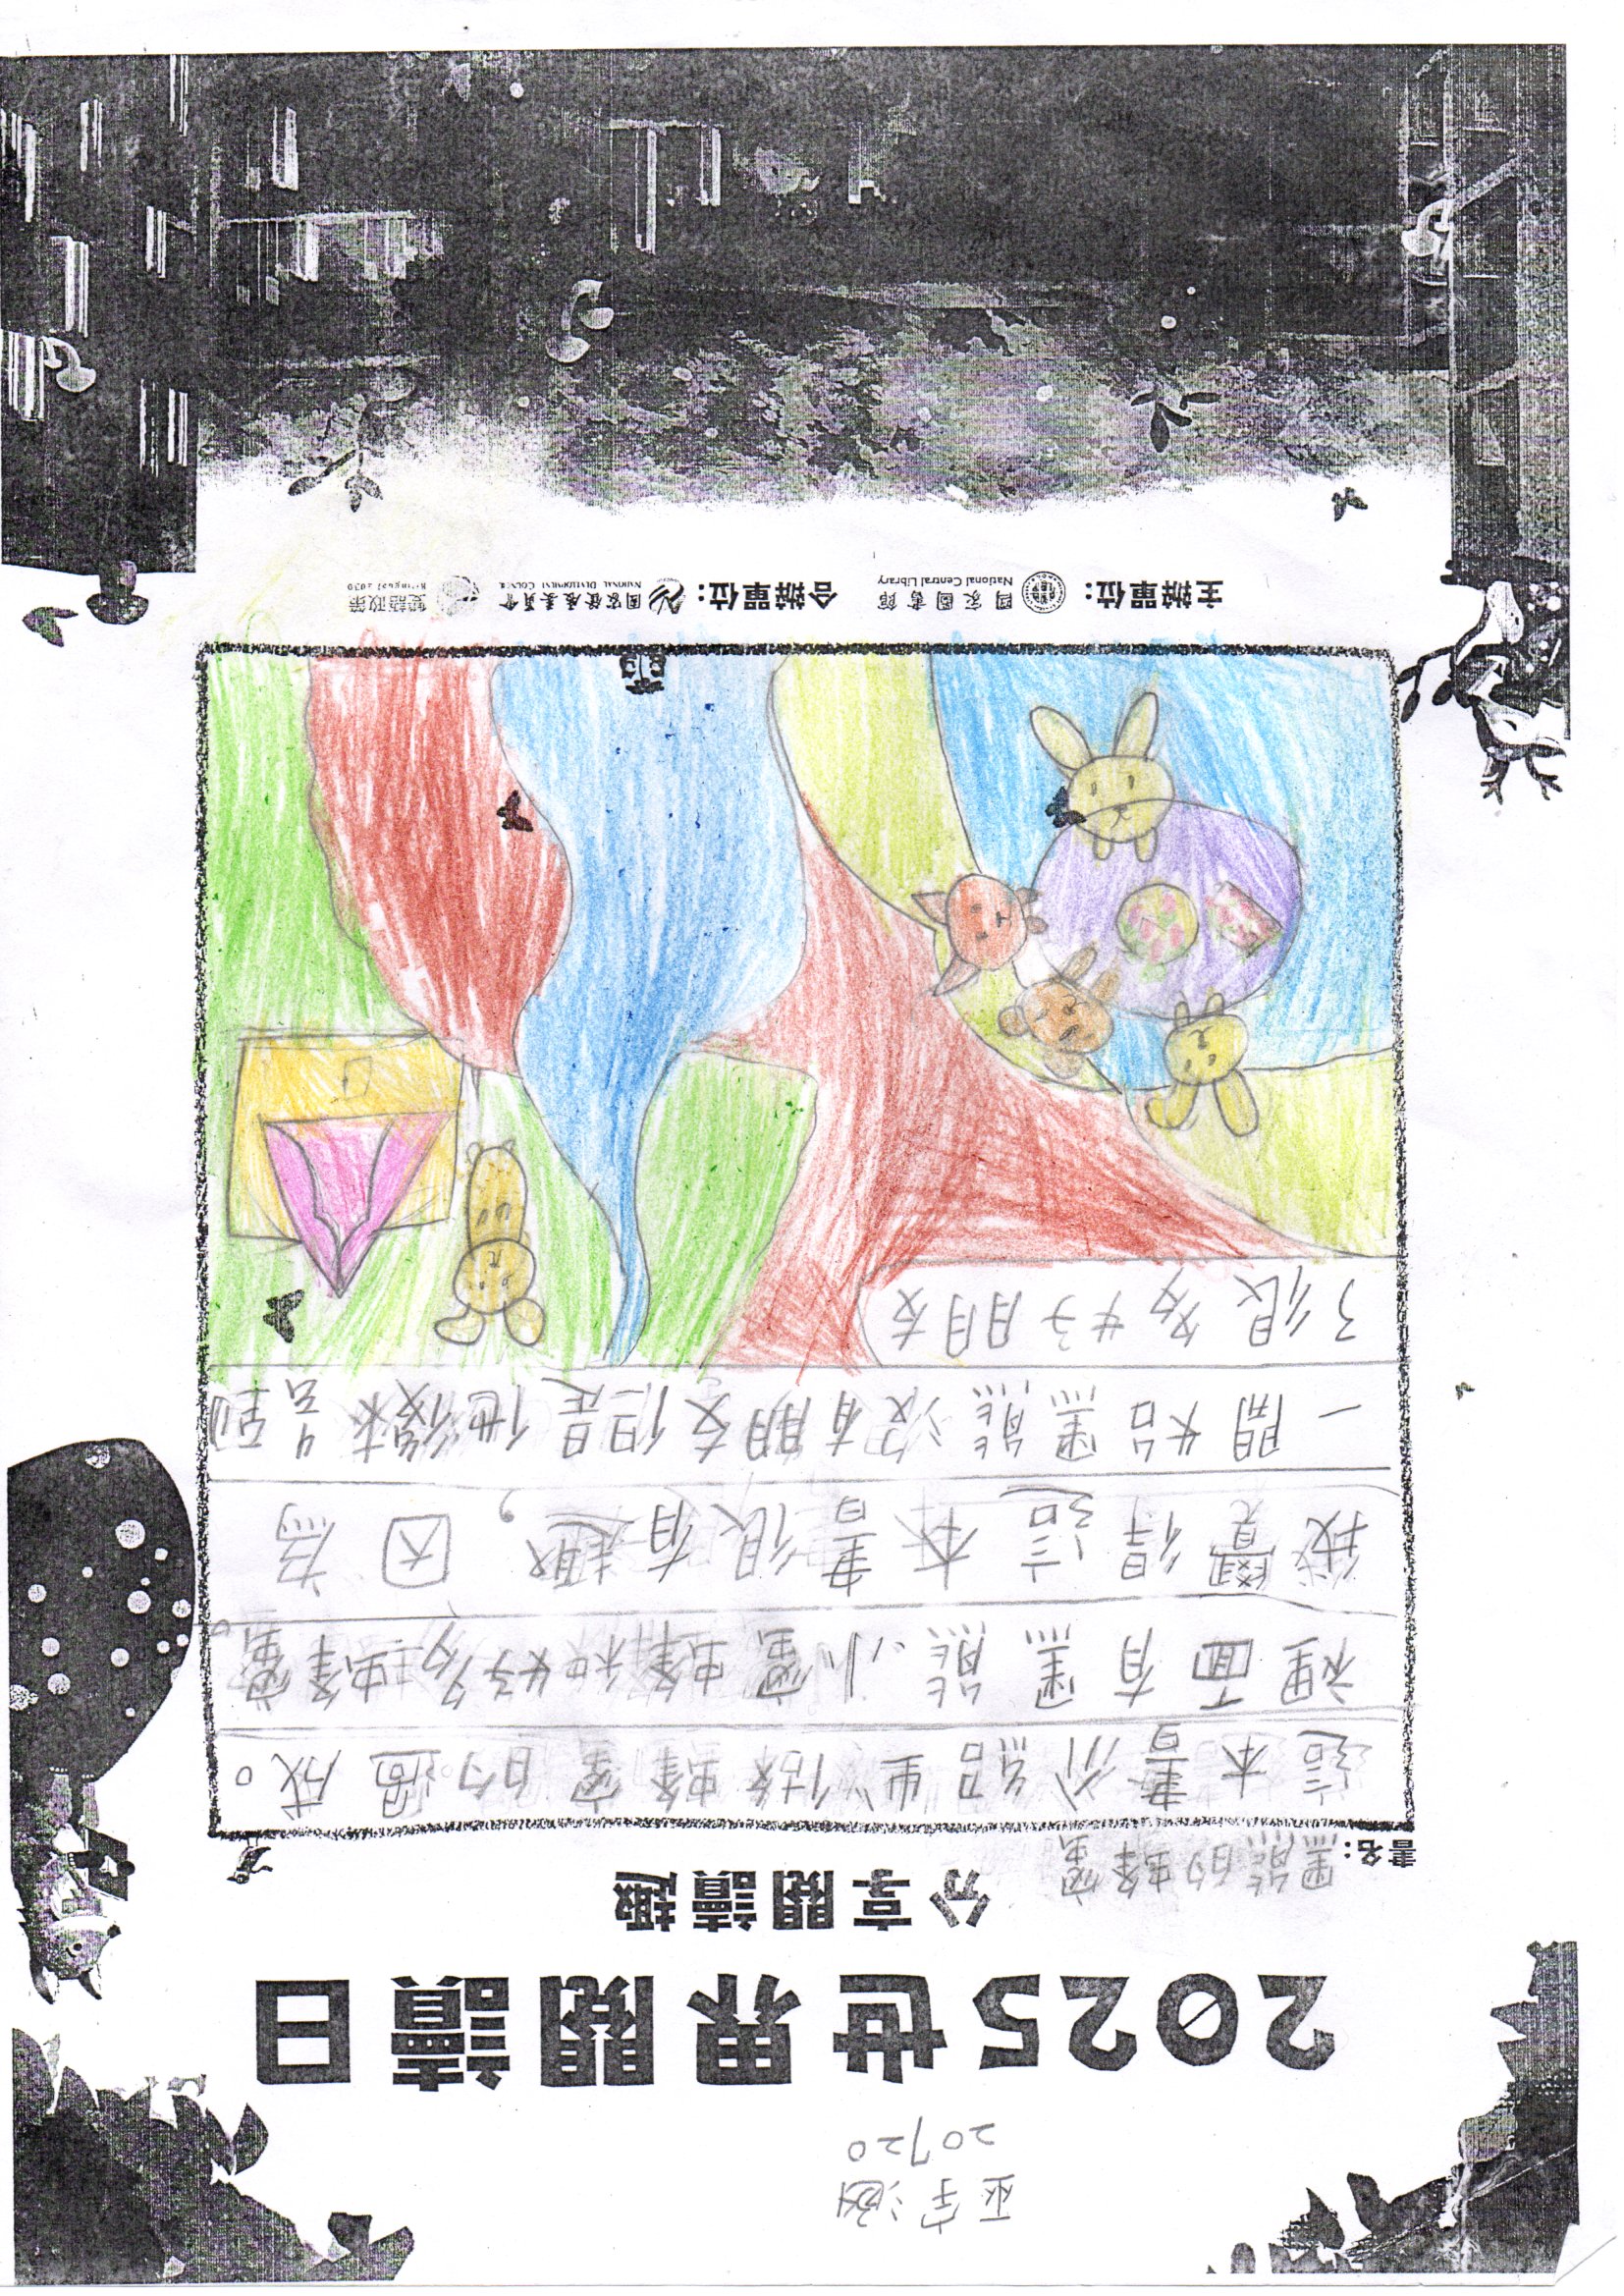 巫宇涵
20720
2025世界閱讀日
分享閱讀趣
書名：黑熊的蜂蜜
這本書介紹如做蜂蜜的過成。
裡面有黑熊小蜜蜂和好多蜂蜜。
我覺得這本書很有趣，因為
一開始黑熊沒有朋友但是他後來舀到
了很多好朋友
主辦單位：國家圖書館
National Central Library
合辦單位：國家發展委員會
NATIONAL DEVELOPMENT COUNCIL
雙語政策
Bilingual 2030